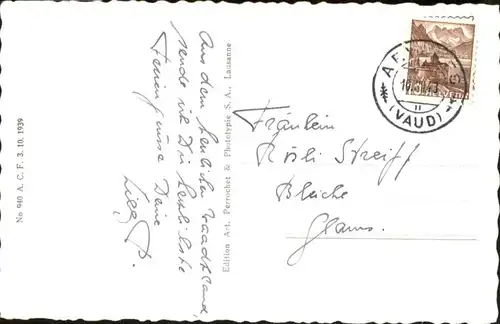 Aus dem herrlichen Waadtland,
sende ich Dir herzlichste
Feriengrüsse Deine
Fräulein
Rösli Streiff
Bleiche
Glarus.
(VAUD)
Edition Art. Perrochet & Phototypie S. A., Lausanne
No 940 A. C. F. 3. 10. 1939